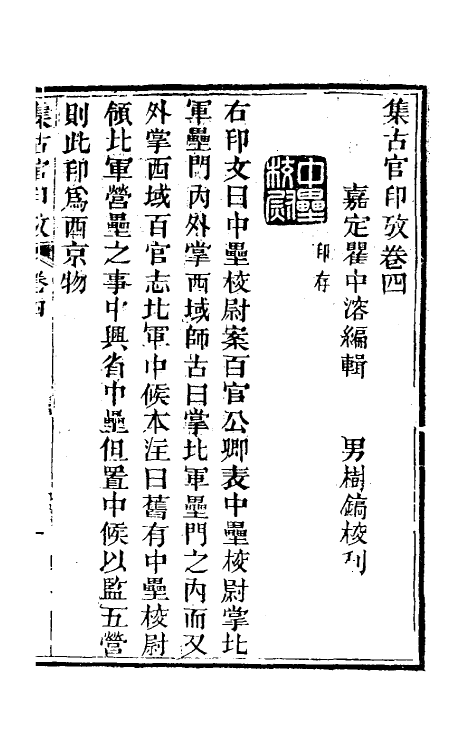 集古官印攷卷四
嘉定瞿中溶編輯　男樹鎬校刊
中壘校尉
印存
右印文曰中壘校尉案百官公卿表中壘校尉掌北
軍壘門內外掌西域師古曰掌北軍壘門之內而又
外掌西域百官志北軍中候本注曰舊有中壘校尉
領北軍營壘之事中興省中壘但置中候以監五營
則此印爲西京物
集古官印攷　卷四　一